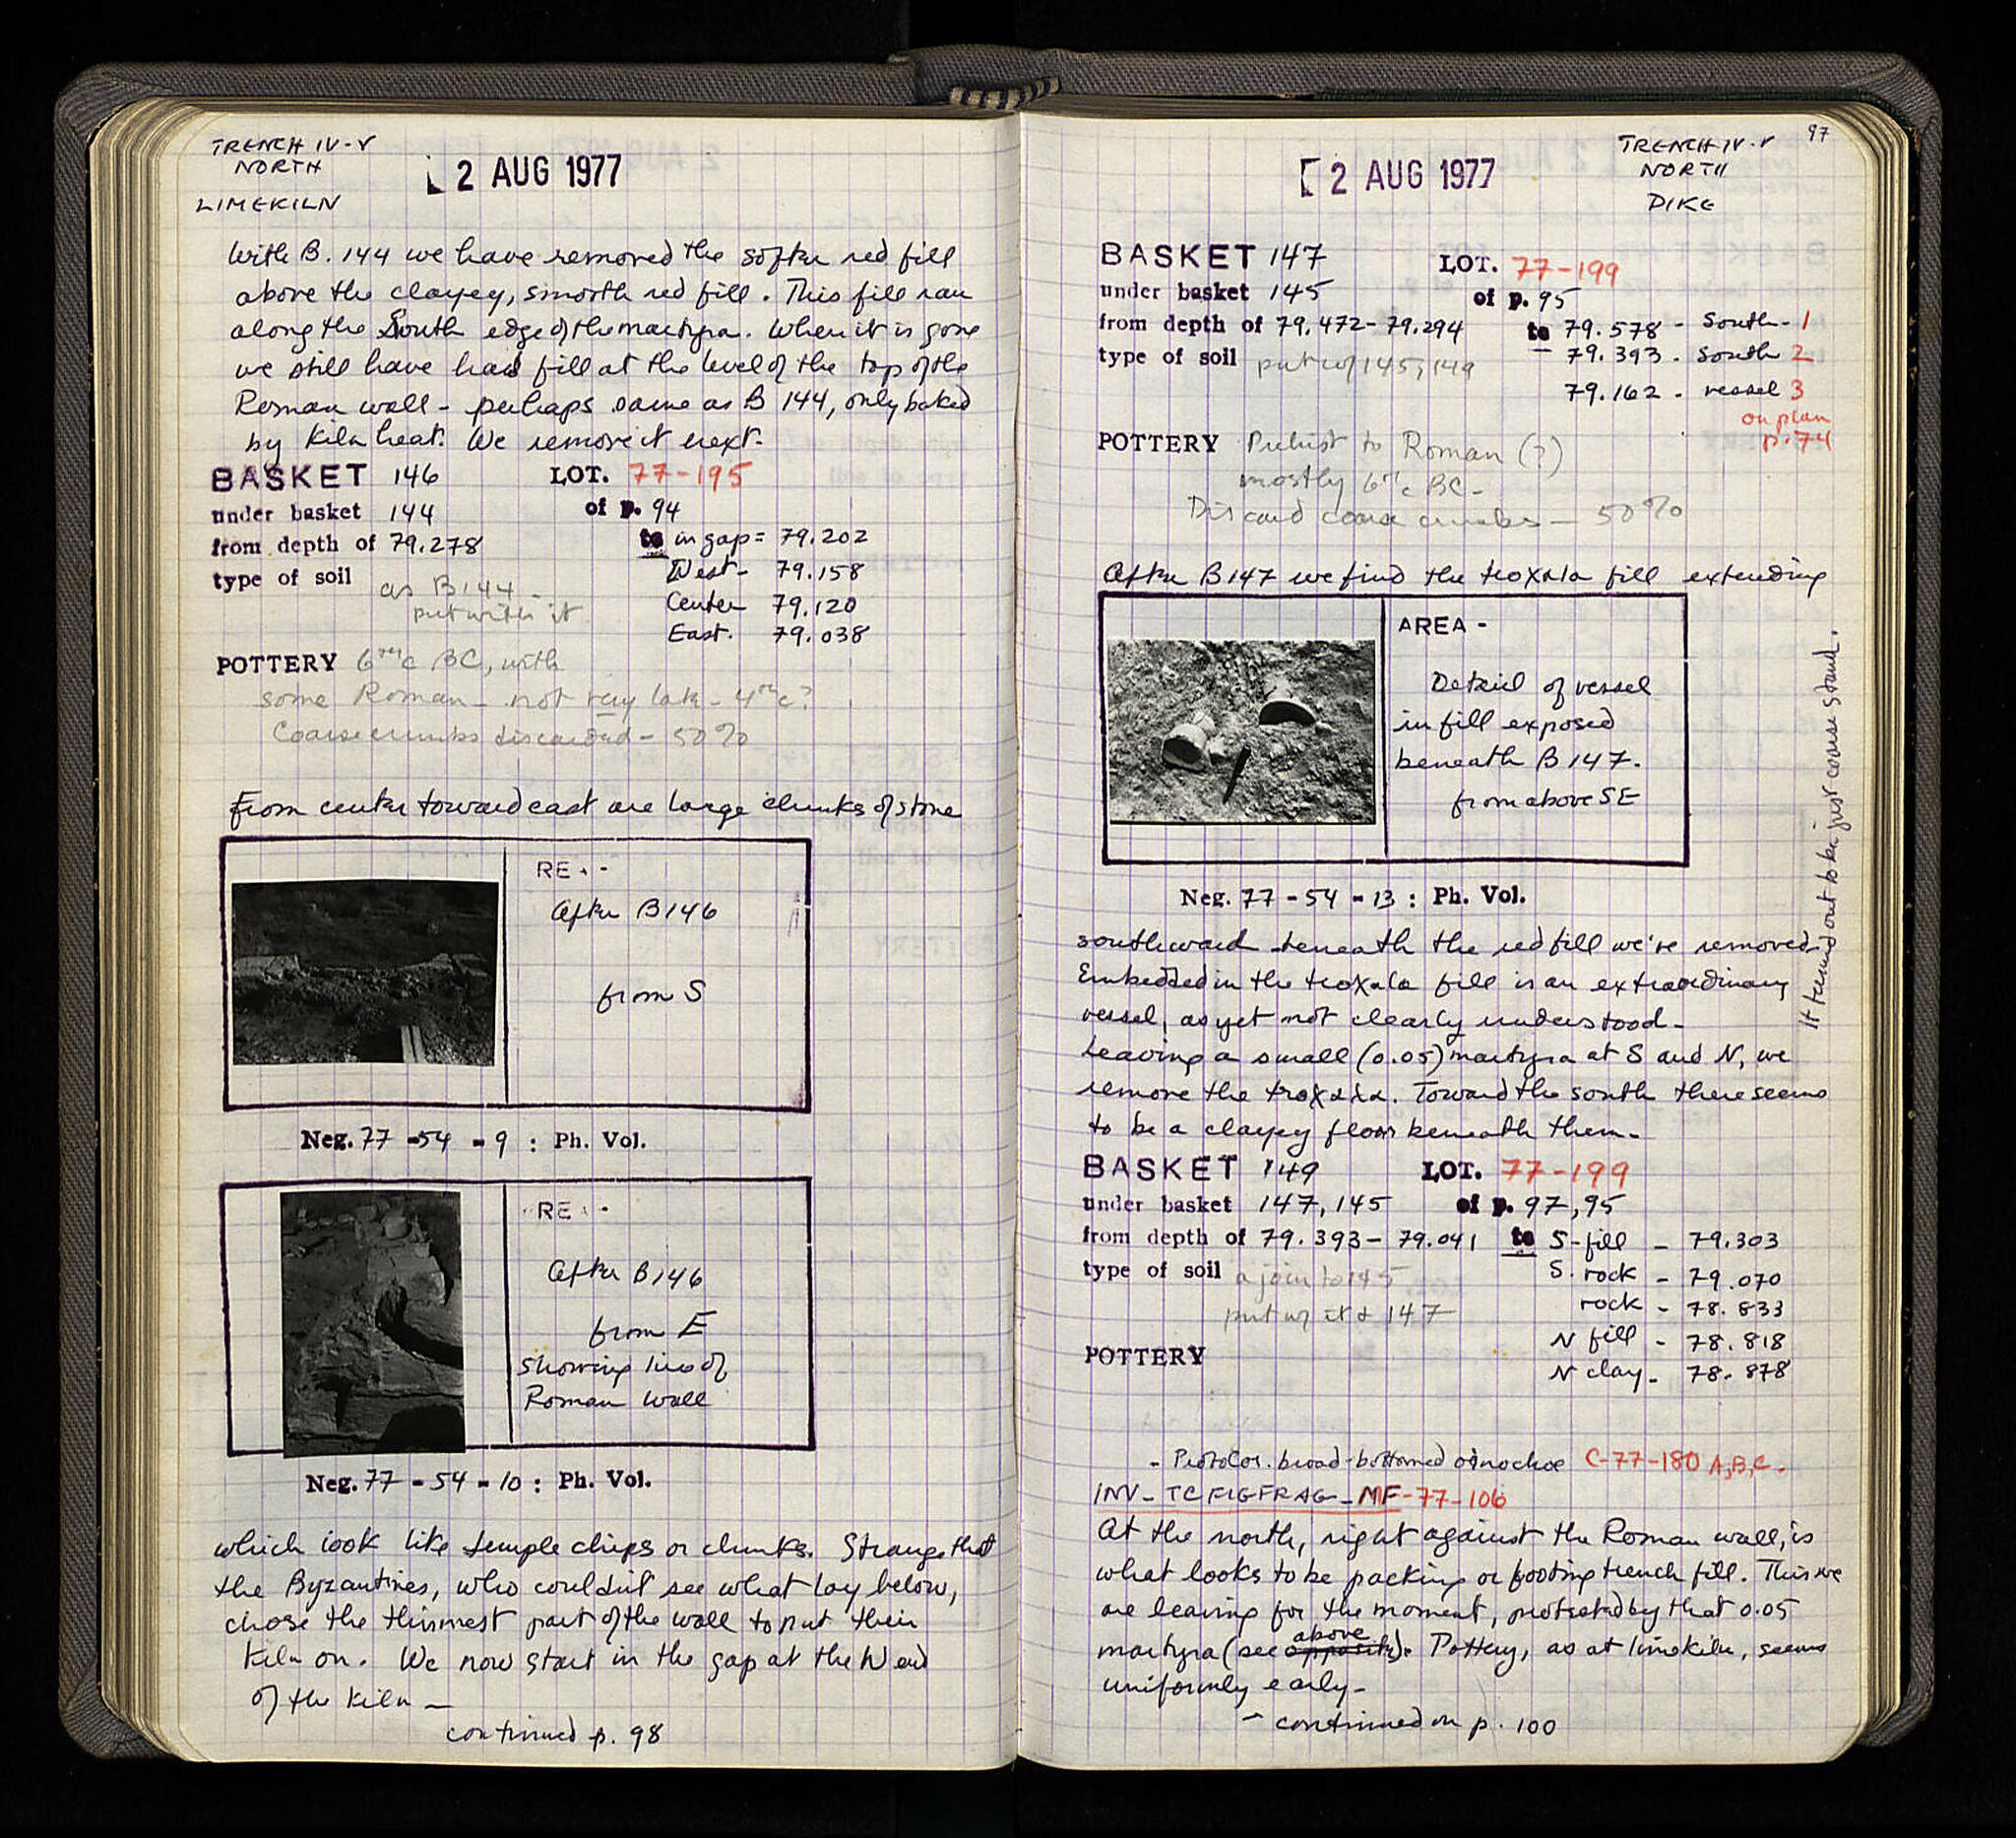 TRENCH IV-V
NORTH
LIMEKILN
2 AUG 1977
With B. 144 we have removed the softer red fill
above the clayey, smooth red fill. This fill ran
along the South edge of the martyra. When it is gone
we still have hard fill at the level of the top of the
Roman wall - perhaps same as B 144, only baked
by kiln heat. We remove it next.
BASKET 146 LOT. 77-195
under basket 144 of p. 94
from depth of 79.278 to in gap = 79.202
West - 79.158
type of soil as B 144 -
put with it
Center 79.120
East. 79.038
POTTERY 6th c BC, with
some Roman - not very late - 4th c?
Coarse crumbs discarded - 50%
From center toward east are large chunks of stone
After B146
from S
Neg. 77-54-9 : Ph. Vol.
After B146
from E
showing line of
Roman wall
Neg. 77-54-10 : Ph. Vol.
which look like temple chips or chunks. Strange that
the Byzantines, who couldn't see what lay below,
chose the thinnest part of the wall to put their
kiln on. We now start in the gap at the W end
of the kiln -
continued p. 98
97
TRENCH IV-V
NORTH
DIKE
2 AUG 1977
BASKET 147 LOT. 77-199
under basket 145 of p. 95
from depth of 79.472 - 79.294 to 79.578 - South - 1
type of soil put w/ 145, 149 - 79.393 - South 2
79.162 - vessel 3
on plan
p. 74
POTTERY Prehist to Roman (?)
mostly 6th c BC -
Discard coarse crumbs - 50%
After B147 we find the troxala fill extending
AREA -
Detail of vessel
in fill exposed
beneath B 147.
from above SE
Neg. 77-54-13 : Ph. Vol.
It turned out to be just coarse stand.
southward beneath the red fill we've removed.
Embedded in the troxala fill is an extraordinary
vessel, as yet not clearly understood -
Leaving a small (0.05) martyra at S and N, we
remove the troxala. Toward the south there seems
to be a clayey floor beneath them.
BASKET 149 LOT. 77-199
under basket 147, 145 of p. 97, 95
from depth of 79.393 - 79.041 to S-fill - 79.303
type of soil a join to 145 S. rock - 79.070
put w/ it & 147 rock - 78.833
N fill - 78.818
POTTERY
N clay - 78.878
- ProtoCor. broad-bottomed oinochoe C-77-180 A,B,C.
INV - TC FIG FRAG - MF-77-106
At the north, right against the Roman wall, is
what looks to be packing or footing trench fill. This we
are leaving for the moment, protected by that 0.05
martyra (see above). Pottery, as at limekiln, seems
uniformly early -
- continued on p. 100